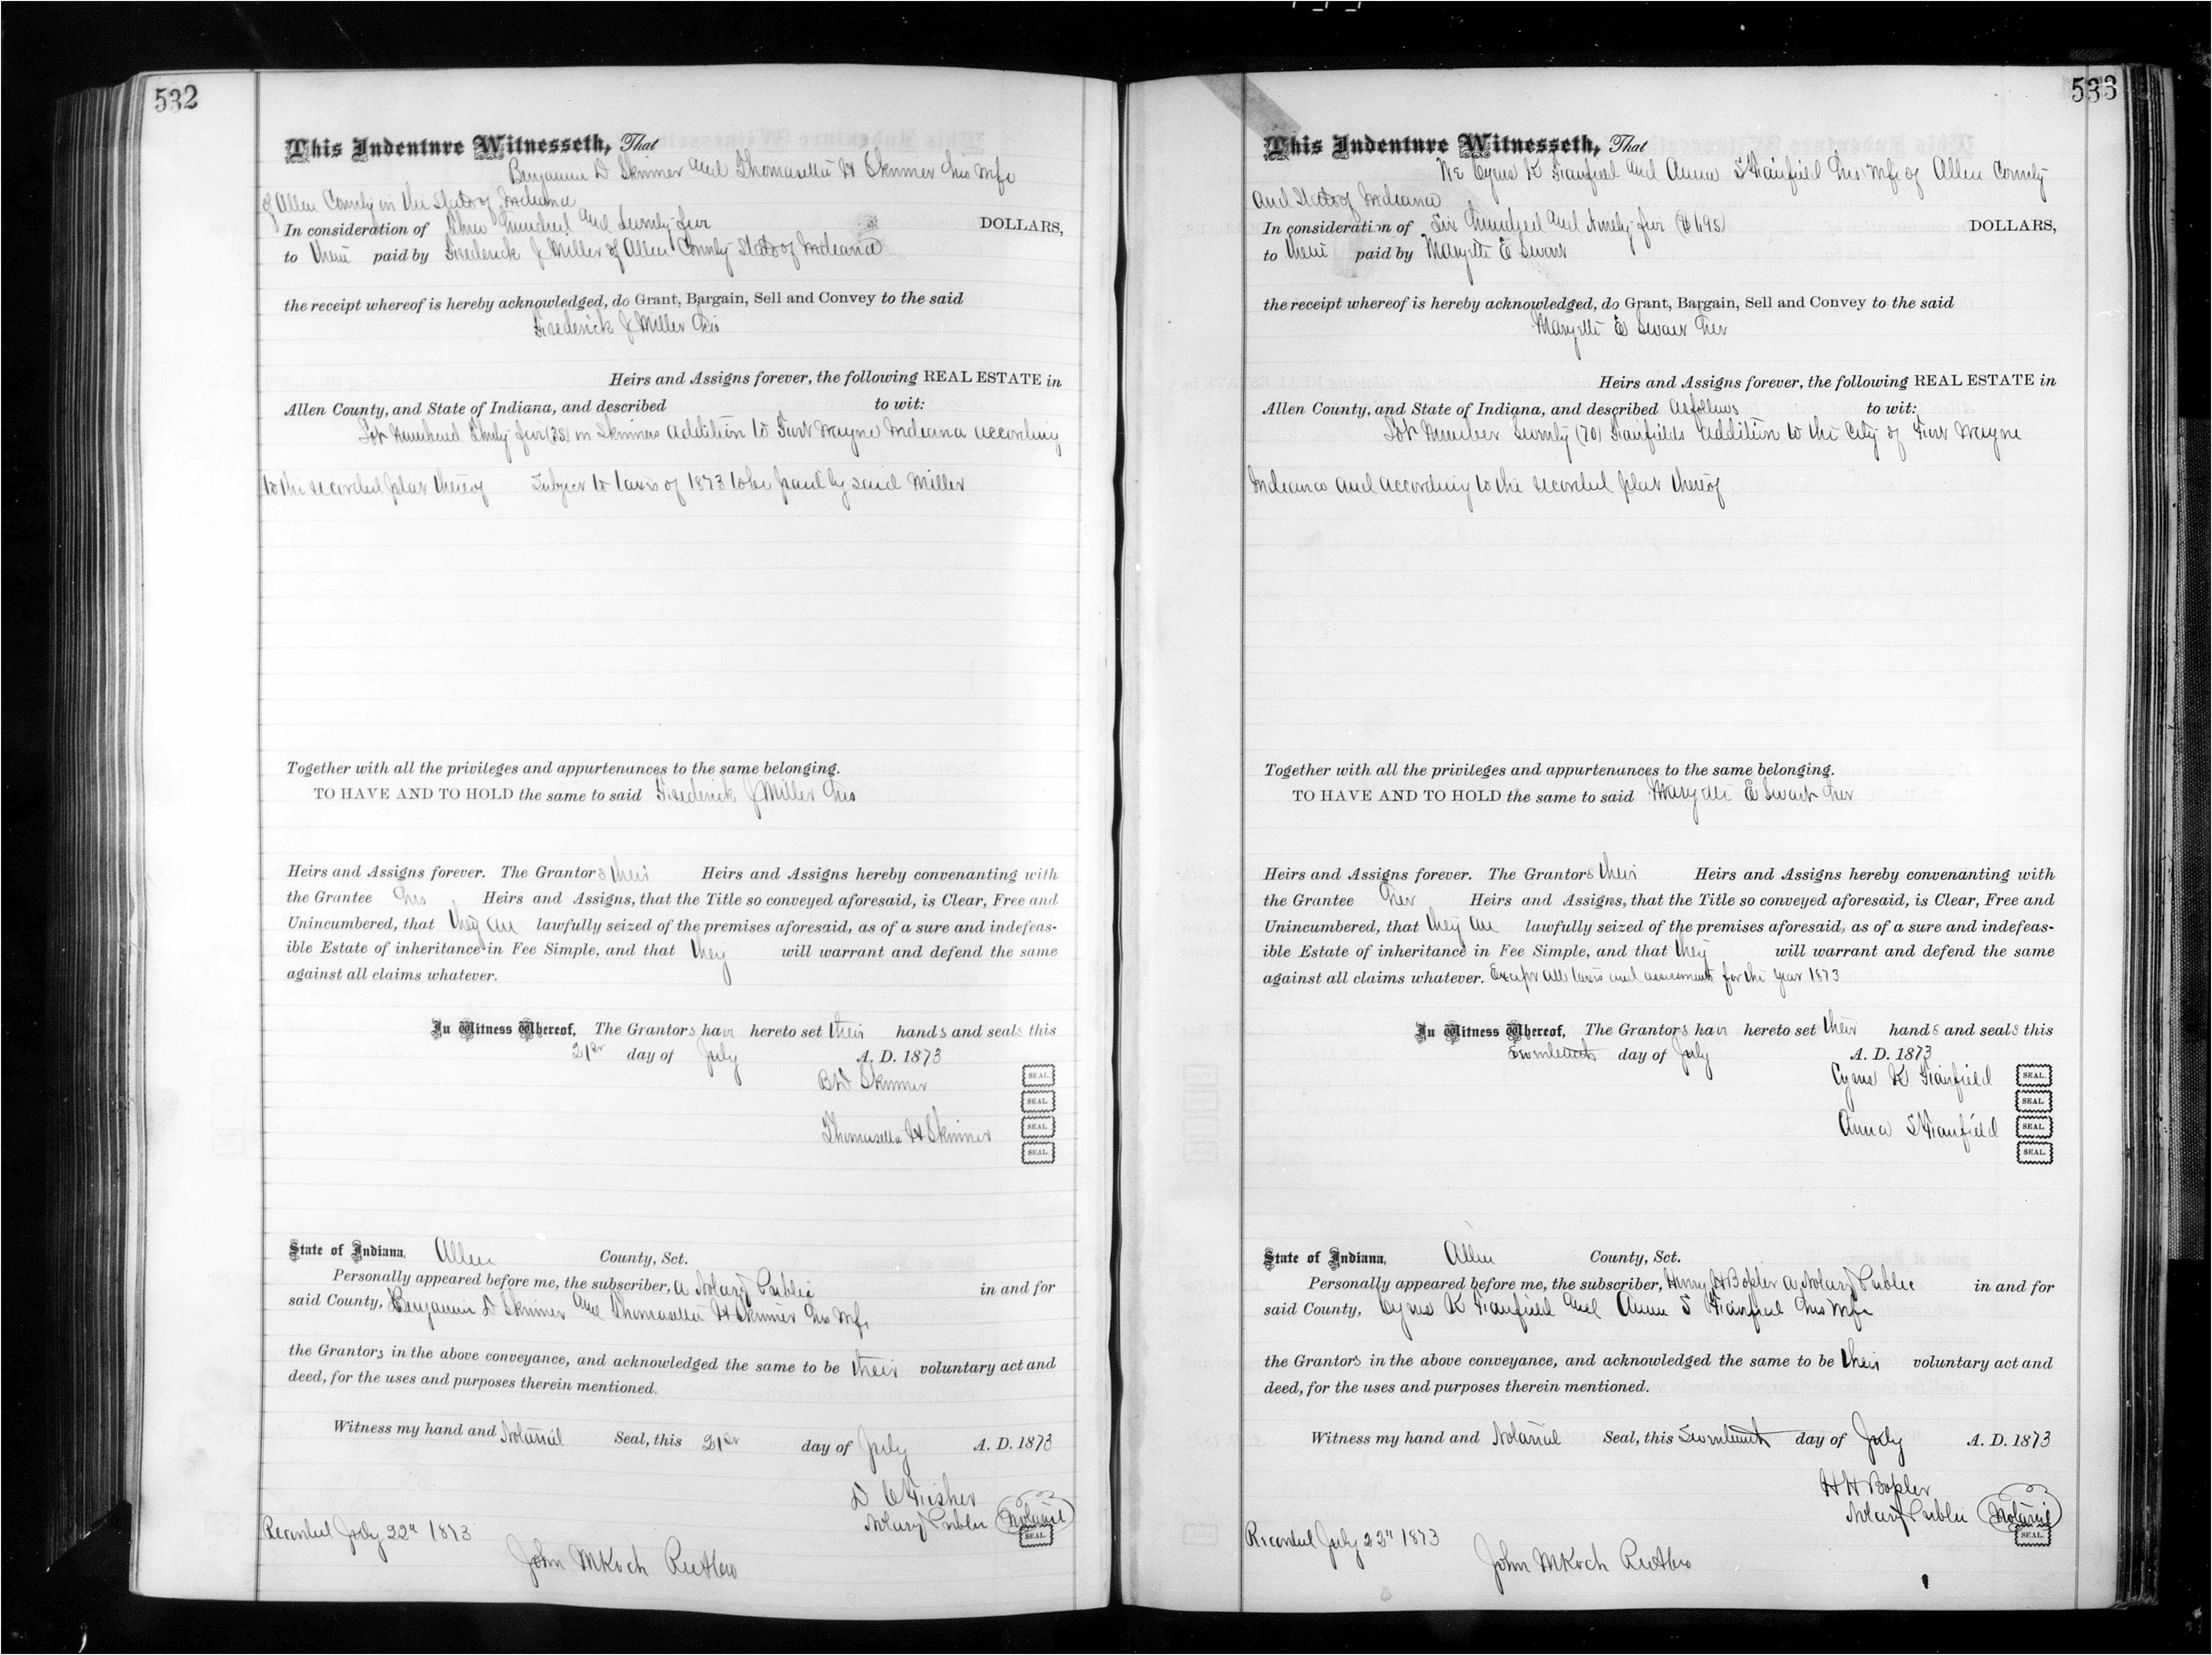 532
This Indenture Witnesseth, That
Benjamin D Skinner and Thomasella H Skinner his wife
of Allen County in the State of Indiana
In consideration of Three Hundred and Seventy five DOLLARS,
to them paid by Frederick J Miller of Allen County State of Indiana
the receipt whereof is hereby acknowledged, do Grant, Bargain, Sell and Convey to the said
Frederick J Miller his
Heirs and Assigns forever, the following REAL ESTATE in
Allen County, and State of Indiana, and described to wit:
Lot Numbered Thirty five (35) in Skinners Addition to Fort Wayne Indiana according
to the recorded plat thereof Subject to taxes of 1873 to be paid by said Miller
Together with all the privileges and appurtenances to the same belonging.
TO HAVE AND TO HOLD the same to said Frederick J Miller his
Heirs and Assigns forever. The Grantors their Heirs and Assigns hereby convenanting with
the Grantee his Heirs and Assigns, that the Title so conveyed aforesaid, is Clear, Free and
Unincumbered, that they are lawfully seized of the premises aforesaid, as of a sure and indefeas-
ible Estate of inheritance in Fee Simple, and that they will warrant and defend the same
against all claims whatever.
In Witness Whereof, The Grantors have hereto set their hands and seals this
21st day of July A. D. 1873
B D Skinner SEAL.
SEAL.
Thomasella H Skinner SEAL.
SEAL.
State of Indiana, Allen County, Sct.
Personally appeared before me, the subscriber, a Notary Public in and for
said County, Benjamin D Skinner and Thomasella H Skinner his wife
the Grantors in the above conveyance, and acknowledged the same to be their voluntary act and
deed, for the uses and purposes therein mentioned.
Witness my hand and Notarial Seal, this 21st day of July A. D. 1873
D C Fisher
Notary Public Notarial SEAL.
Recorded July 22d 1873
John M Koch
533
This Indenture Witnesseth, That
We Cyrus K Fairfield and Anna S Fairfield his wife of Allen County
and State of Indiana
In consideration of Six Hundred and Ninety five ($695) DOLLARS,
to them paid by Maryette E Swart
the receipt whereof is hereby acknowledged, do Grant, Bargain, Sell and Convey to the said
Maryette E Swart her
Heirs and Assigns forever, the following REAL ESTATE in
Allen County, and State of Indiana, and described as follows to wit:
Lot Number Seventy (70) Fairfields Addition to the City of Fort Wayne
Indiana and according to the recorded plat thereof
Together with all the privileges and appurtenances to the same belonging.
TO HAVE AND TO HOLD the same to said Maryette E Swart her
Heirs and Assigns forever. The Grantors their Heirs and Assigns hereby convenanting with
the Grantee her Heirs and Assigns, that the Title so conveyed aforesaid, is Clear, Free and
Unincumbered, that they are lawfully seized of the premises aforesaid, as of a sure and indefeas-
ible Estate of inheritance in Fee Simple, and that they will warrant and defend the same
against all claims whatever. Except all taxes and assessments for the year 1873
In Witness Whereof, The Grantors have hereto set their hands and seals this
Seventeenth day of July A. D. 1873
Cyrus K Fairfield SEAL.
SEAL.
Anna S Fairfield SEAL.
SEAL.
State of Indiana, Allen County, Sct.
Personally appeared before me, the subscriber, Henry H Bopler a Notary Public in and for
said County, Cyrus K Fairfield and Anna S Fairfield his wife
the Grantors in the above conveyance, and acknowledged the same to be their voluntary act and
deed, for the uses and purposes therein mentioned.
Witness my hand and Notarial Seal, this Seventeenth day of July A. D. 1873
H H Bopler
Notary Public Notarial SEAL.
Recorded July 22d 1873
John M Koch